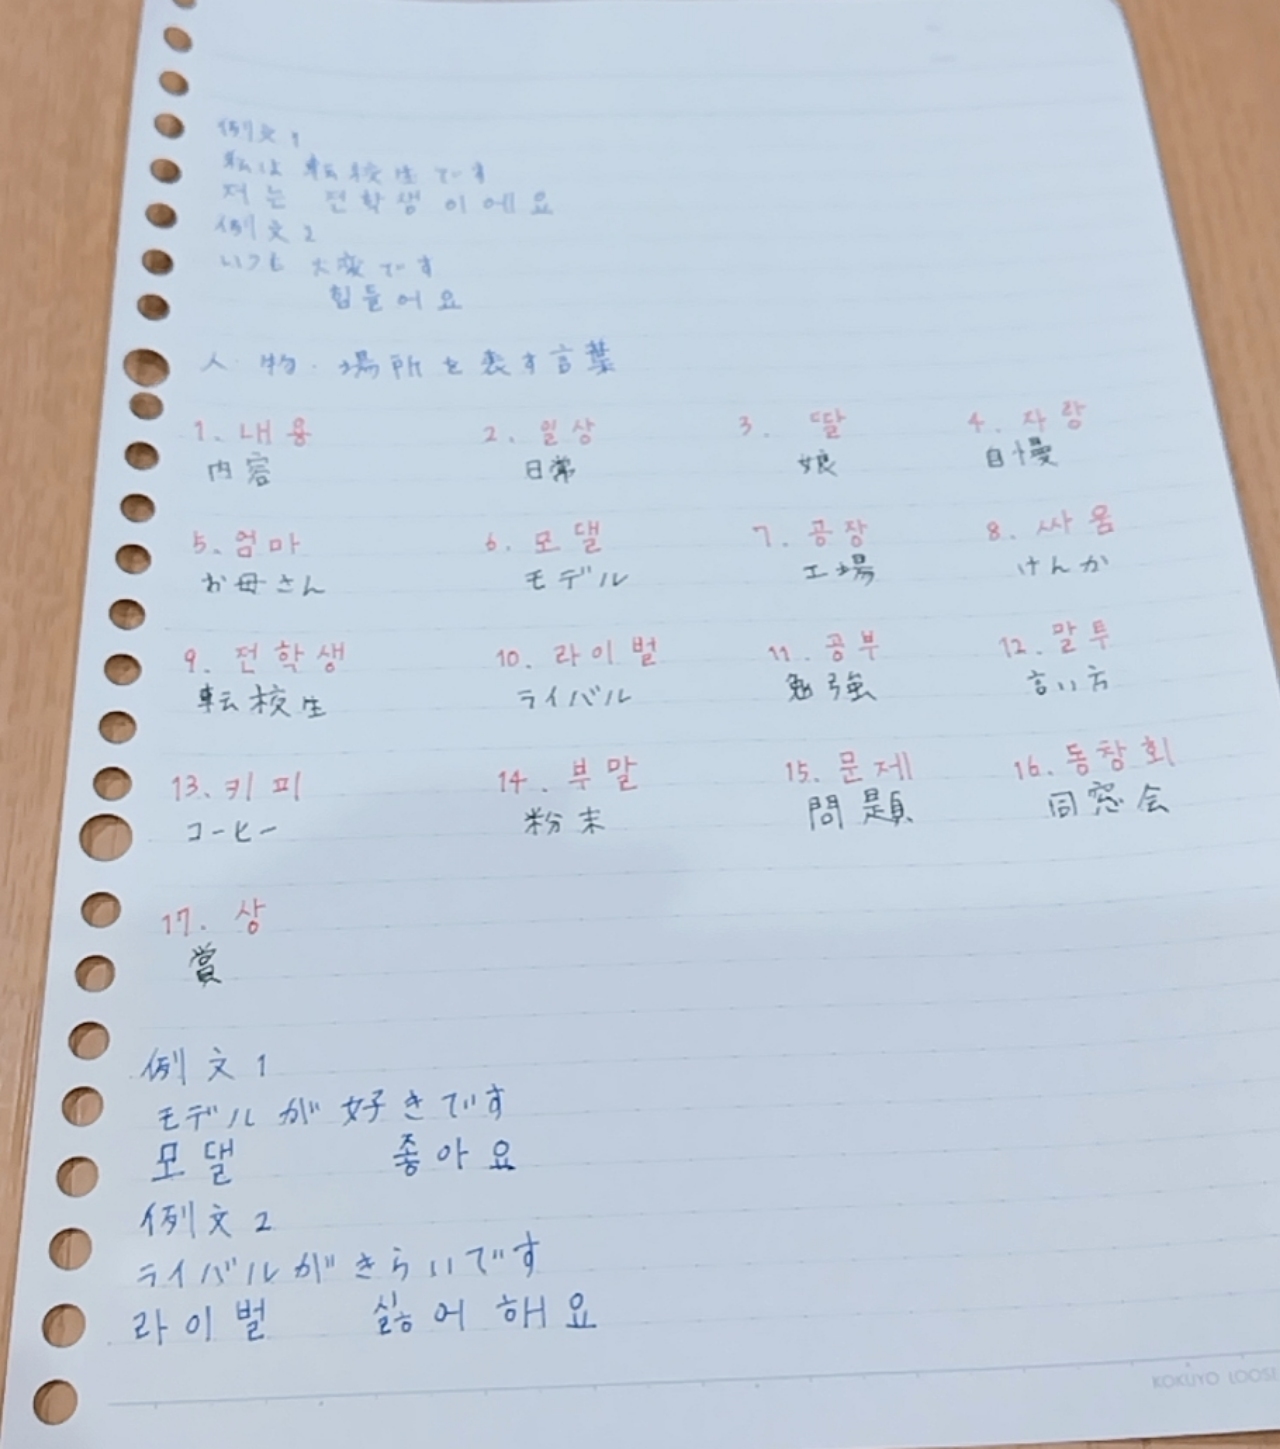 例文1
私は転校生です
저는 전학생이에요
例文2
いつも 大変です
힘들어요
人・物・場所を表す言葉
1. 내용 2. 일상 3. 딸 4. 자랑
内容 日常 娘 自慢
5. 엄마 6. 모댈 7. 공장 8. 싸움
お母さん モデル 工場 けんか
9. 전학생 10. 라이벌 11. 공부 12. 말투
転校生 ライバル 勉強 言い方
13. 키피 14. 부말 15. 문제 16. 동창회
コーヒー 粉末 問題 同窓会
17. 상
賞
例文1
モデルが好きです
모댈 좋아요
例文2
ライバルがきらいです
라이벌 싫어해요
KOKUYO LOOSE